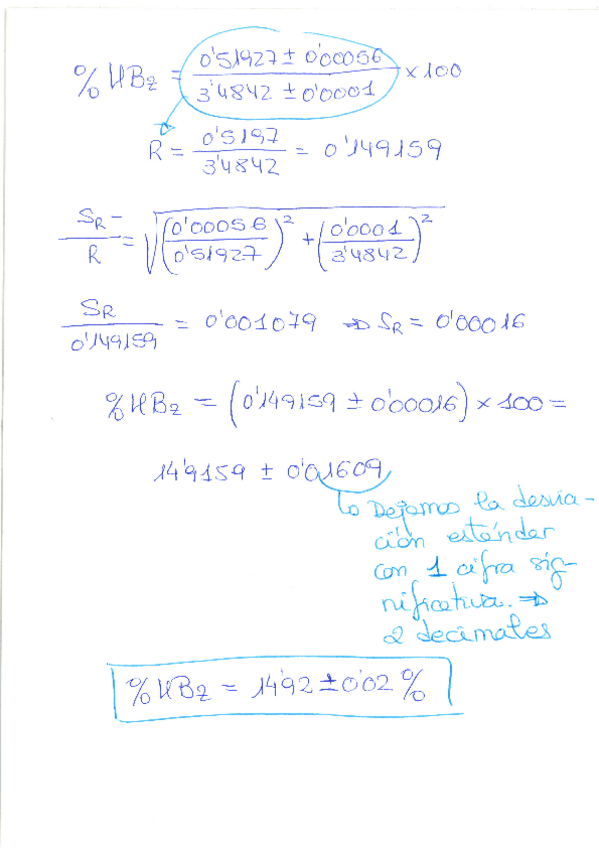 % HBz = (0'51927 ± 0'00056)/(3'4842 ± 0'0001) × 100
R = 0'5197/3'4842 = 0'149159
SR/R = √((0'00056/0'51927)² + (0'0001/3'4842)²)
SR/0'149159 = 0'001079 ⇒ SR = 0'00016
% HBz = (0'149159 ± 0'00016) × 100 =
14'9159 ± 0'01609
↳ Dejamos la desvia-
ción estándar
con 1 cifra sig-
nificativa. ⇒
2 decimales
% HBz = 14'92 ± 0'02 %